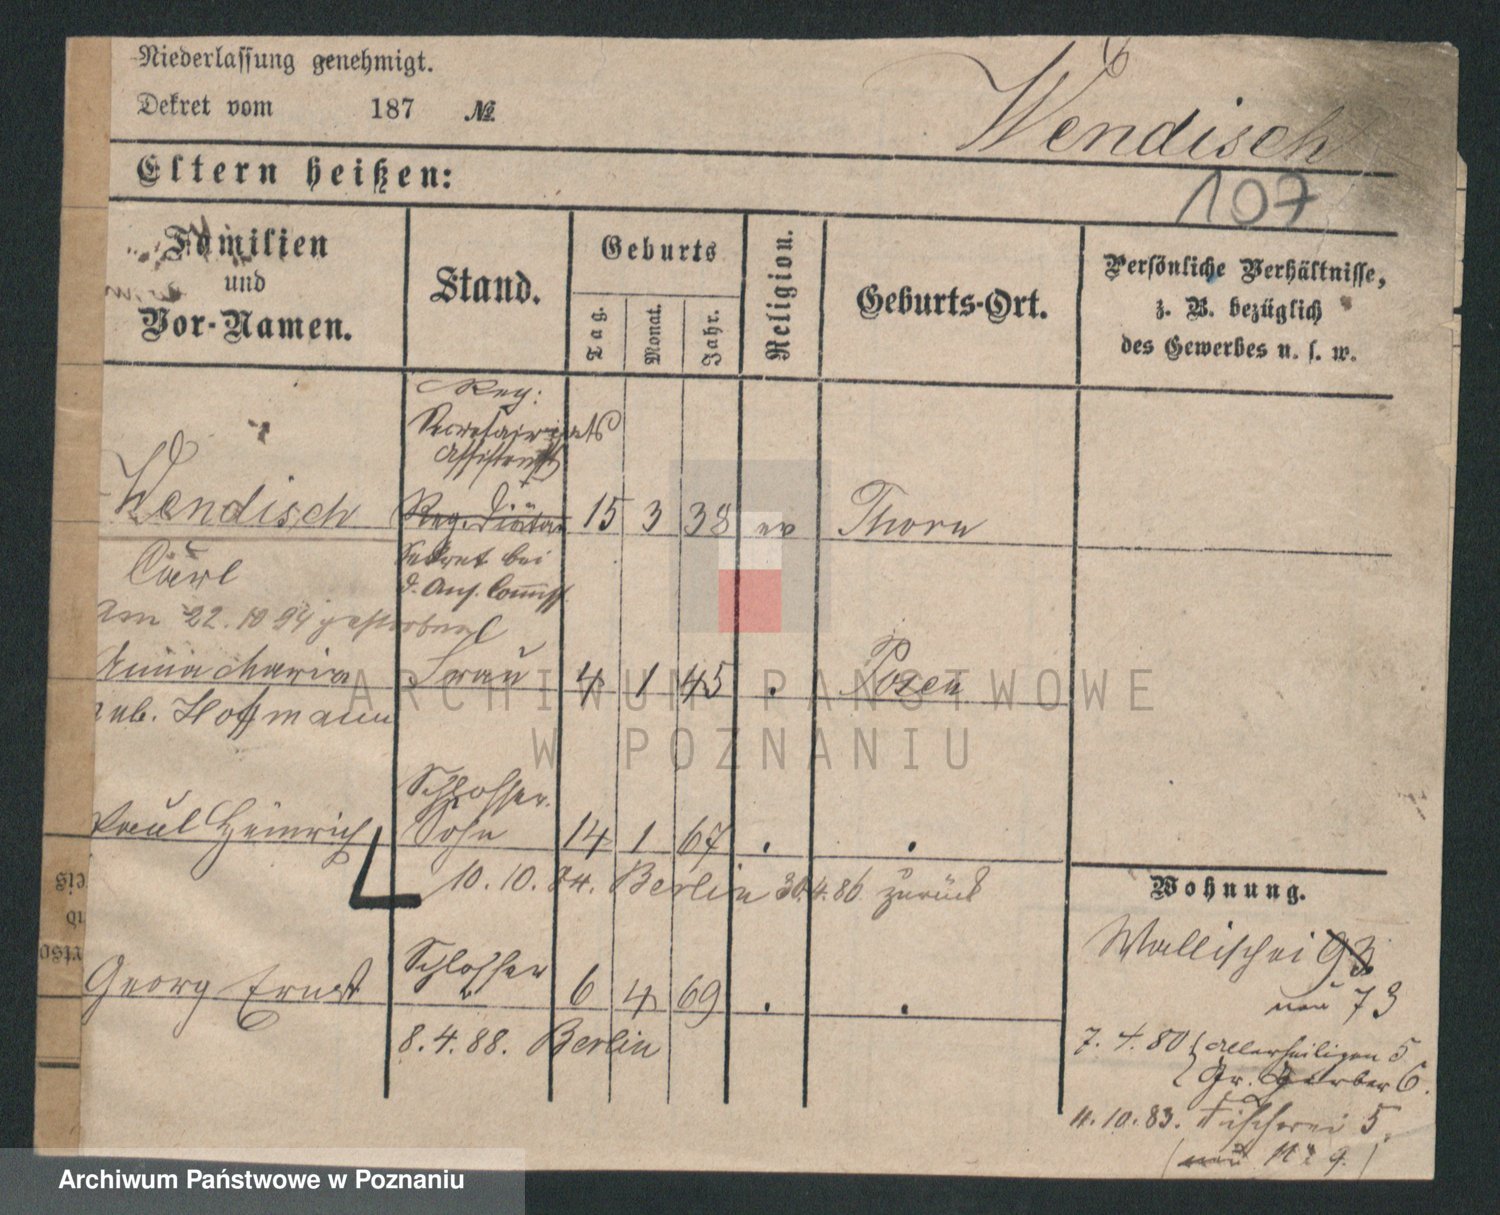 Niederlassung genehmigt.
Dekret vom 187 №
Wendisch
107
Eltern heißen:
Familien
und
Vor-Namen.
Stand.
Geburts
Tag.
Monat.
Jahr.
Religion.
Geburts-Ort.
Persönliche Verhältnisse,
z. B. bezüglich
des Gewerbes u. s. w.
Reg:
Secretairiats
Assistent
Wendisch Reg. Diätar 15 3 38 ev Thorn
Carl
Sekret bei
d. Ans. Commiss.
am 22.10 94 gestorben
Anna Maria Frau 4 1 45 . Posen
geb. Hoffmann
Schlosser
Paul Heinrich Sohn 14 1 67 . .
10.10.84. Berlin 30.4.86 zurück
Georg Ernst Schlosser 6 4 69 . .
8.4.88. Berlin
Wohnung.
Wallischei 93
neu 73
7.4.80 Allerheiligen 5
Gr. Gerber 6.
11.10.83. Fischerei 5.
(neu № 9.)
ARCHIWUM PAŃSTWOWE
W POZNANIU
Archiwum Państwowe w Poznaniu